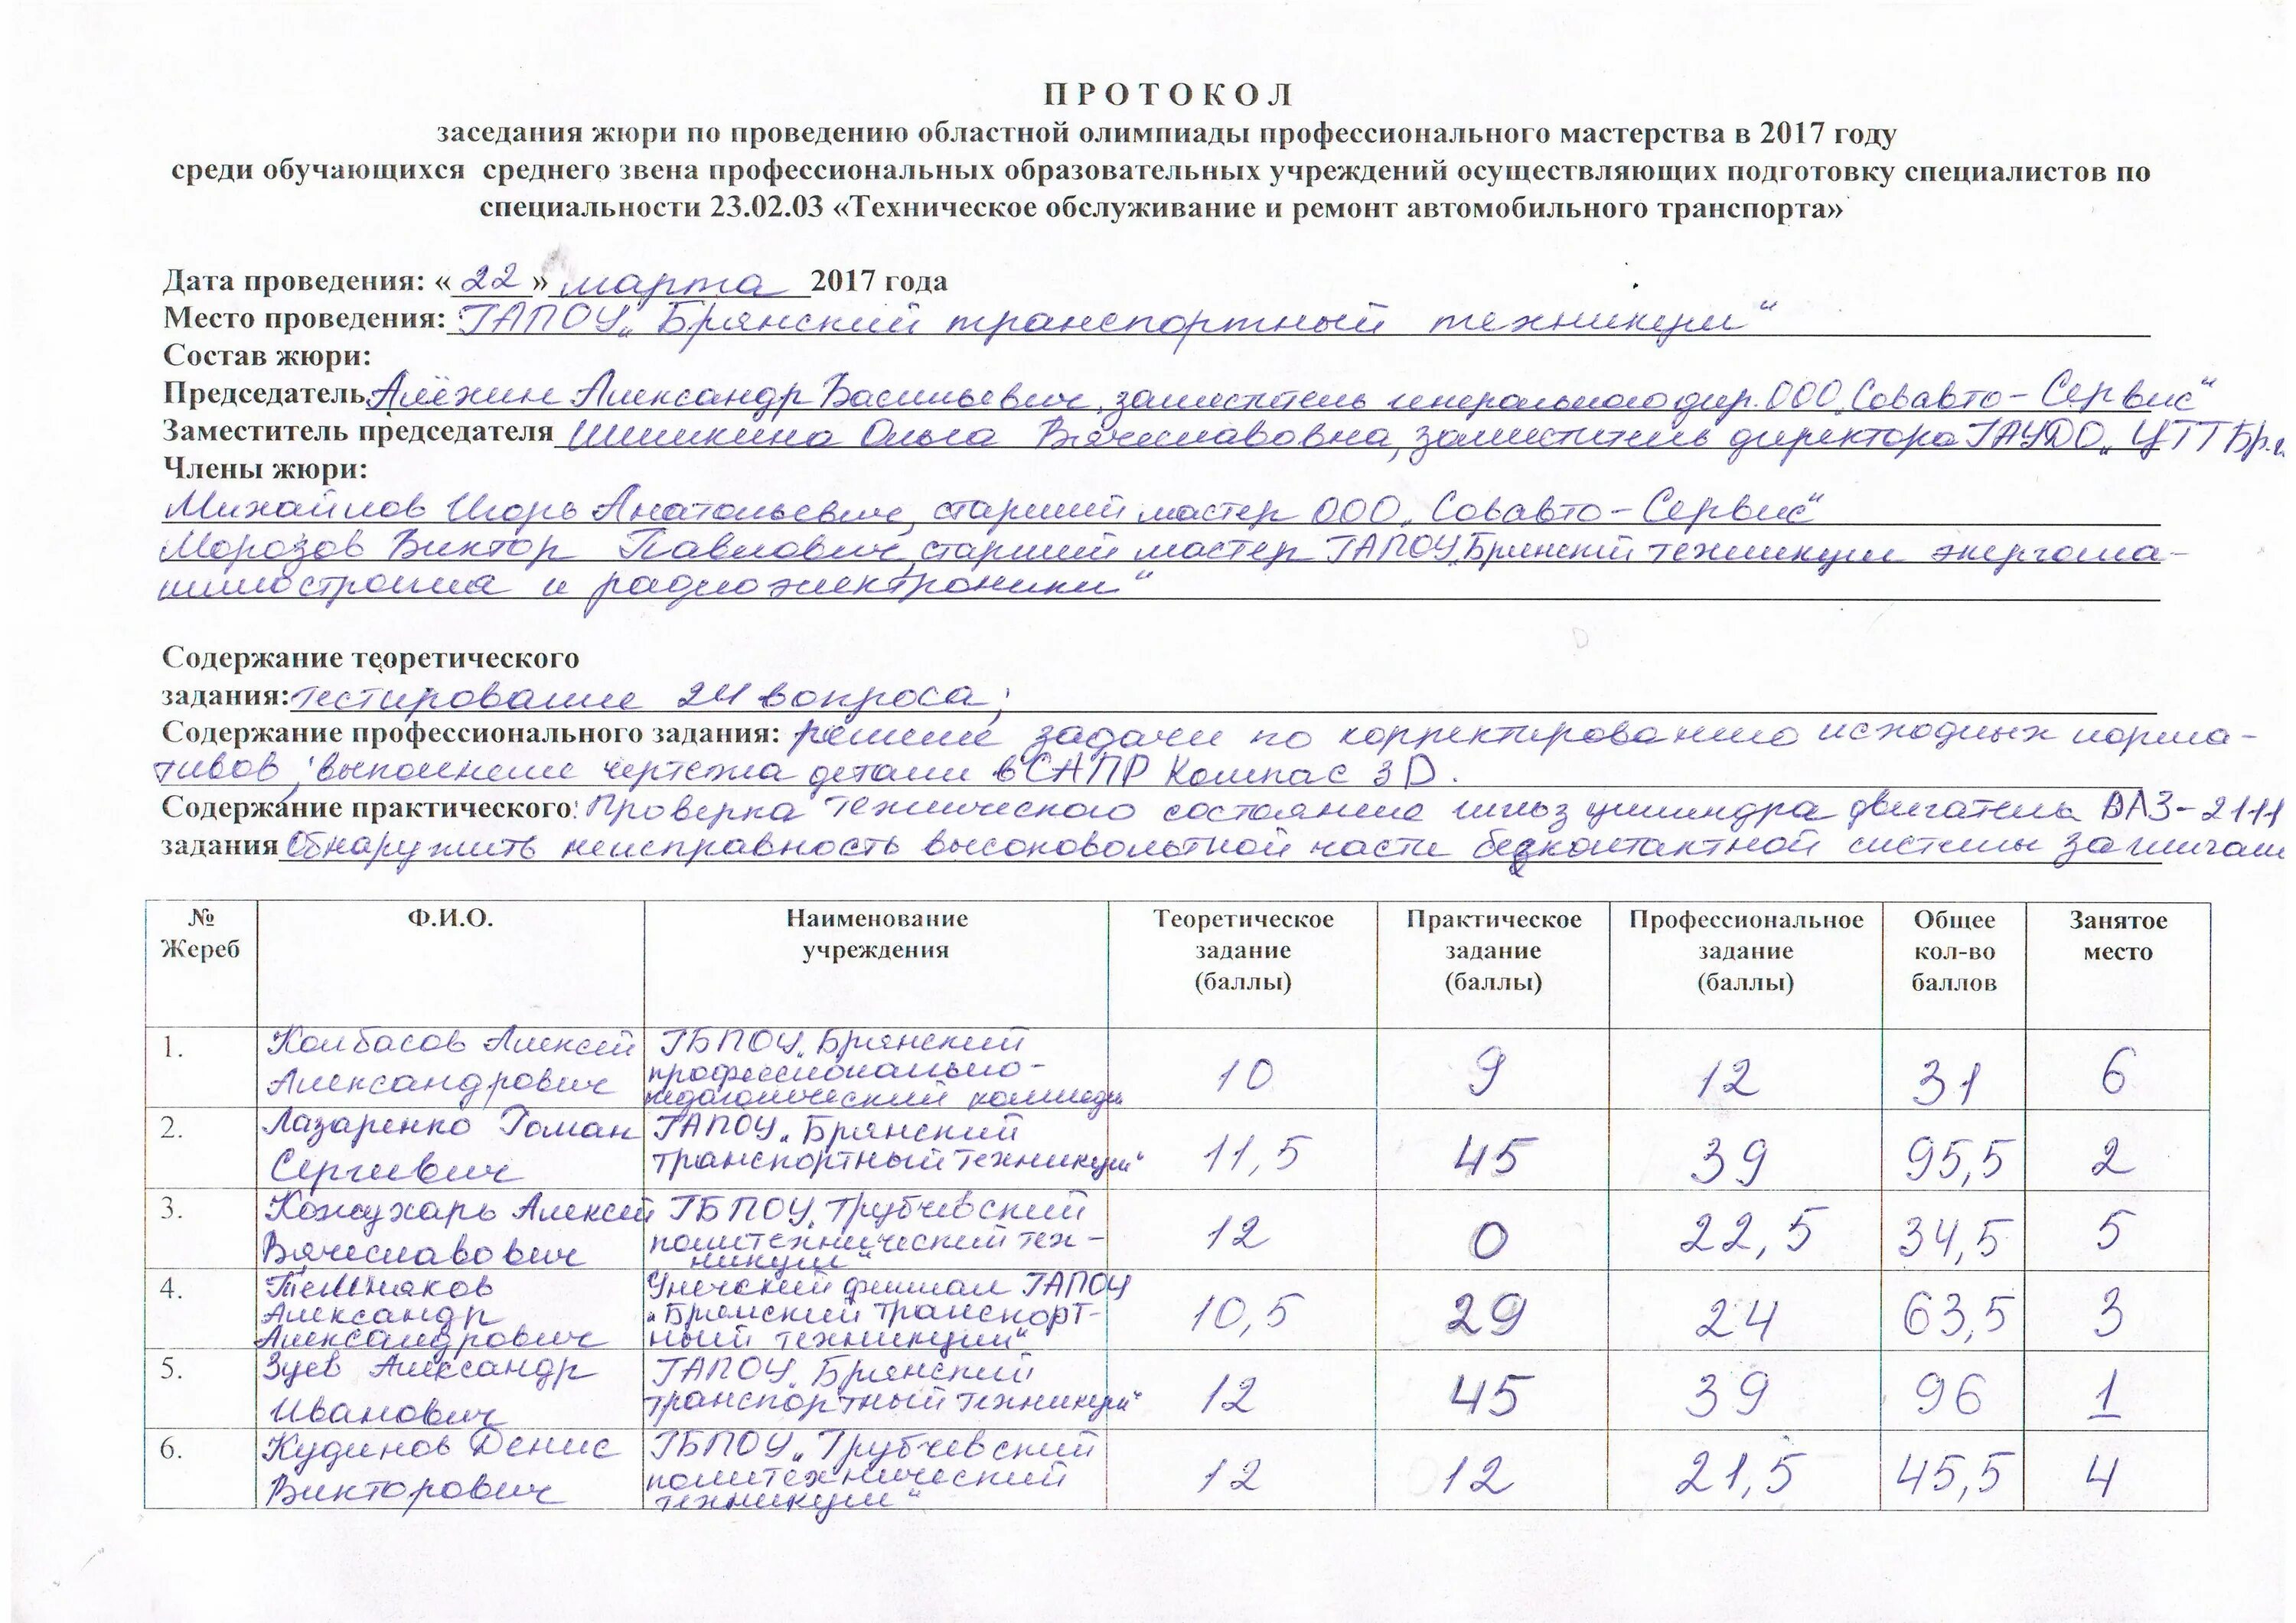 П Р О Т О К О Л
заседания жюри по проведению областной олимпиады профессионального мастерства в 2017 году
среди обучающихся среднего звена профессиональных образовательных учреждений осуществляющих подготовку специалистов по
специальности 23.02.03 «Техническое обслуживание и ремонт автомобильного транспорта»
Дата проведения: «22» марта 2017 года
Место проведения: ГАПОУ „Брянский транспортный техникум“
Состав жюри:
Председатель Алёхин Александр Васильевич, заместитель генерального дир. ООО „Совавто-Сервис“
Заместитель председателя Шишкина Ольга Вячеславовна, заместитель директора ГАУДО „ЦТТ Бр.
Члены жюри:
Михайлов Игорь Анатольевич, старший мастер ООО „Совавто-Сервис“
Морозов Виктор Павлович, старший мастер ГАПОУ „Брянский техникум энергома-
шиностроения и радиоэлектроники“
Содержание теоретического
задания: тестирование 24 вопроса;
Содержание профессионального задания: решение задачи по корректированию исходных норма-
тивов; выполнение чертежа детали в САПР Компас 3D.
Содержание практического: Проверка технического состояния гильз цилиндра двигателя ВАЗ-2111
задания Обнаружить неисправность высоковольтной части безконтактной системы зажигания
№ Жереб Ф.И.О. Наименование учреждения Теоретическое задание (баллы) Практическое задание (баллы) Профессиональное задание (баллы) Общее кол-во баллов Занятое место
1. Колбасов Алексей Александрович ГБПОУ „Брянский профессионально-педагогический колледж 10 9 12 31 6
2. Лазаренко Роман Сергеевич ГАПОУ „Брянский транспортный техникум“ 11,5 45 39 95,5 2
3. Кожухарь Алексей Вячеславович ГБПОУ „Трубчевский политехнический тех-никум“ 12 0 22,5 34,5 5
4. Александр Александрович Унечский филиал ГАПОУ „Брянский транспорт-ный техникум“ 10,5 29 24 63,5 3
5. Зуев Александр Иванович ГАПОУ „Брянский транспортный техникум“ 12 45 39 96 1
6. Кудинов Денис Викторович ГБПОУ „Трубчевский политехнический техникум“ 12 12 21,5 45,5 4